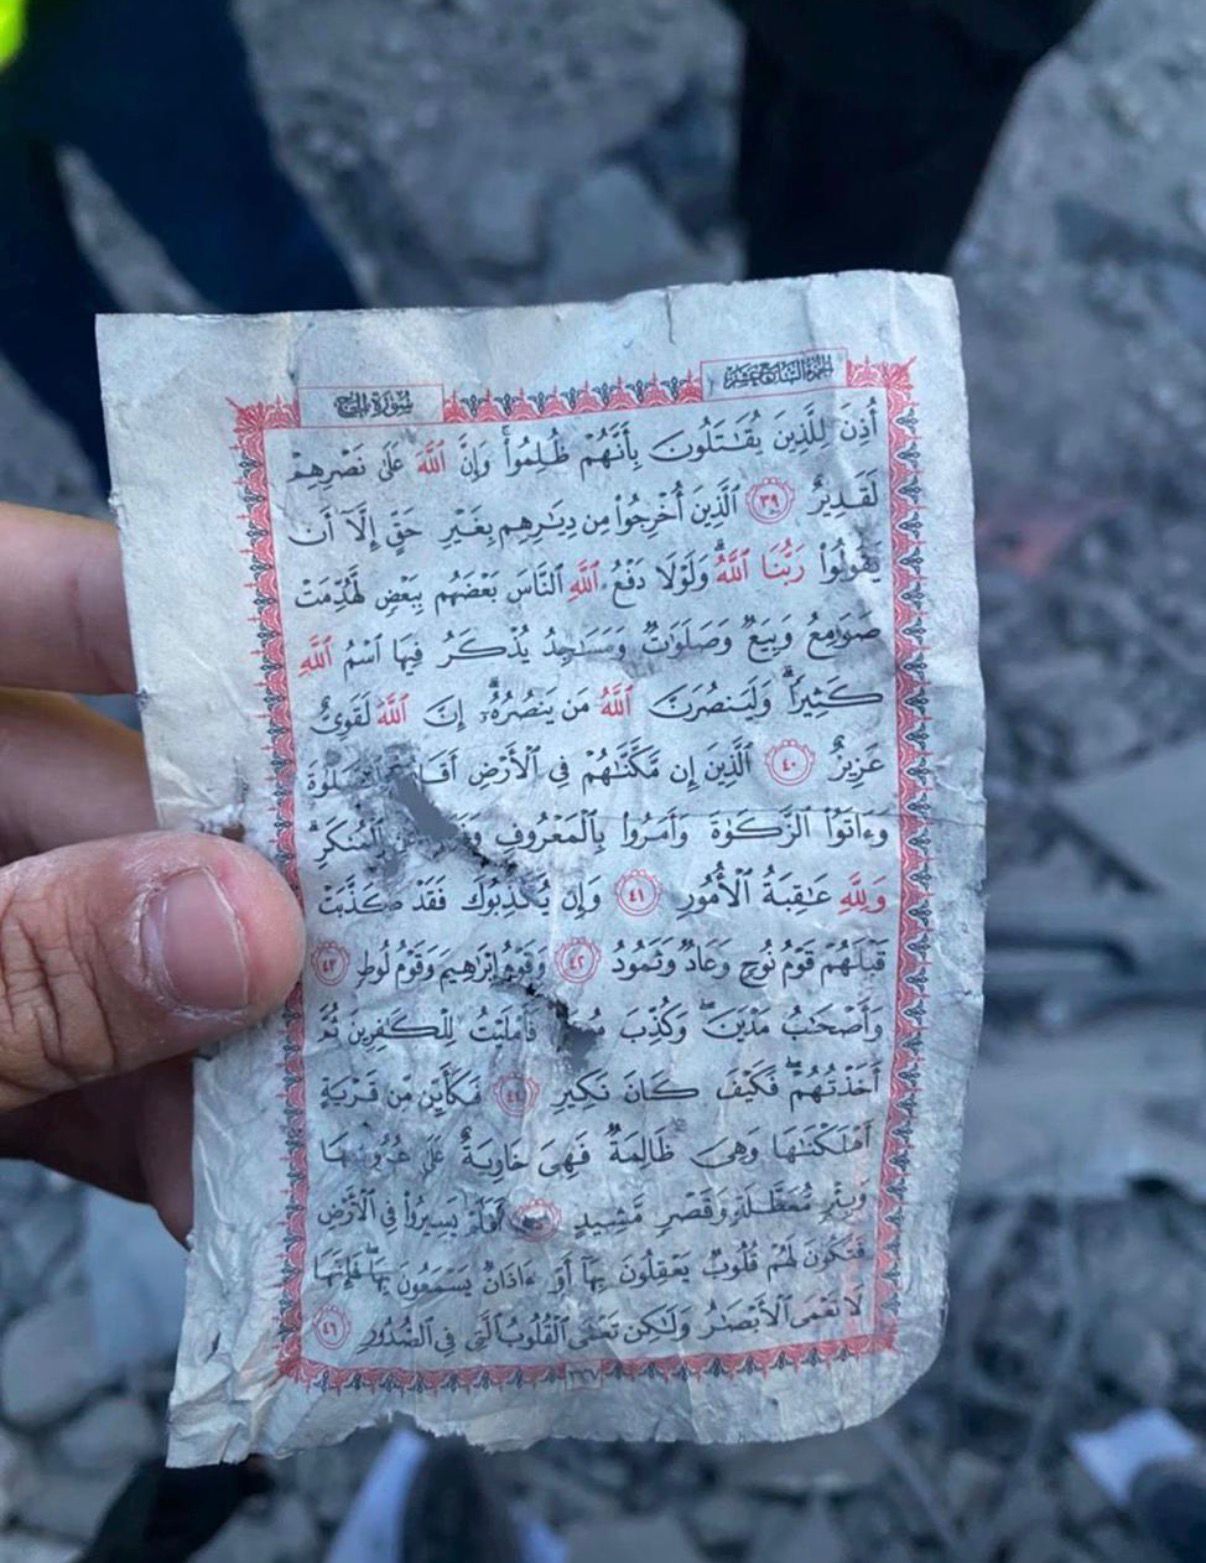 سُورَةُ الحَجّ
الجُزْءُ السَّابِعَ عَشَرَ
أُذِنَ لِلَّذِينَ يُقَٰتَلُونَ بِأَنَّهُمْ ظُلِمُوا۟ ۚ وَإِنَّ ٱللَّهَ عَلَىٰ نَصْرِهِمْ
لَقَدِيرٌ ٣٩ ٱلَّذِينَ أُخْرِجُوا۟ مِن دِيَٰرِهِم بِغَيْرِ حَقٍّ إِلَّآ أَن
يَقُولُوا۟ رَبُّنَا ٱللَّهُ ۗ وَلَوْلَا دَفْعُ ٱللَّهِ ٱلنَّاسَ بَعْضَهُم بِبَعْضٍ لَّهُدِّمَتْ
صَوَٰمِعُ وَبِيَعٌ وَصَلَوَٰتٌ وَمَسَٰجِدُ يُذْكَرُ فِيهَا ٱسْمُ ٱللَّهِ
كَثِيرًا ۗ وَلَيَنصُرَنَّ ٱللَّهُ مَن يَنصُرُهُۥٓ ۗ إِنَّ ٱللَّهَ لَقَوِىٌّ
عَزِيزٌ ٤٠ ٱلَّذِينَ إِن مَّكَّنَّٰهُمْ فِى ٱلْأَرْضِ
وَءَاتَوُا۟ ٱلزَّكَوٰةَ وَأَمَرُوا۟ بِٱلْمَعْرُوفِ ٱلْمُنكَرِ ۗ
وَلِلَّهِ عَٰقِبَةُ ٱلْأُمُورِ ٤١ وَإِن يُكَذِّبُوكَ فَقَدْ كَذَّبَتْ
قَبْلَهُمْ قَوْمُ نُوحٍ وَعَادٌ وَثَمُودُ ٤٢ وَقَوْمُ إِبْرَٰهِيمَ وَقَوْمُ لُوطٍ ٤٣
وَأَصْحَٰبُ مَدْيَنَ ۖ وَكُذِّبَ فَأَمْلَيْتُ لِلْكَٰفِرِينَ ثُمَّ
أَخَذْتُهُمْ ۖ فَكَيْفَ كَانَ نَكِيرِ ٤٤ فَكَأَيِّن مِّن قَرْيَةٍ
أَهْلَكْنَٰهَا وَهِىَ ظَالِمَةٌ فَهِىَ خَاوِيَةٌ عَلَىٰ عُرُوشِهَا
وَبِئْرٍ مُّعَطَّلَةٍ وَقَصْرٍ مَّشِيدٍ أَفَلَمْ يَسِيرُوا۟ فِى ٱلْأَرْضِ
فَتَكُونَ لَهُمْ قُلُوبٌ يَعْقِلُونَ بِهَآ أَوْ ءَاذَانٌ يَسْمَعُونَ بِهَا ۖ فَإِنَّهَا
لَا تَعْمَى ٱلْأَبْصَٰرُ وَلَٰكِن تَعْمَى ٱلْقُلُوبُ ٱلَّتِى فِى ٱلصُّدُورِ ٤٦